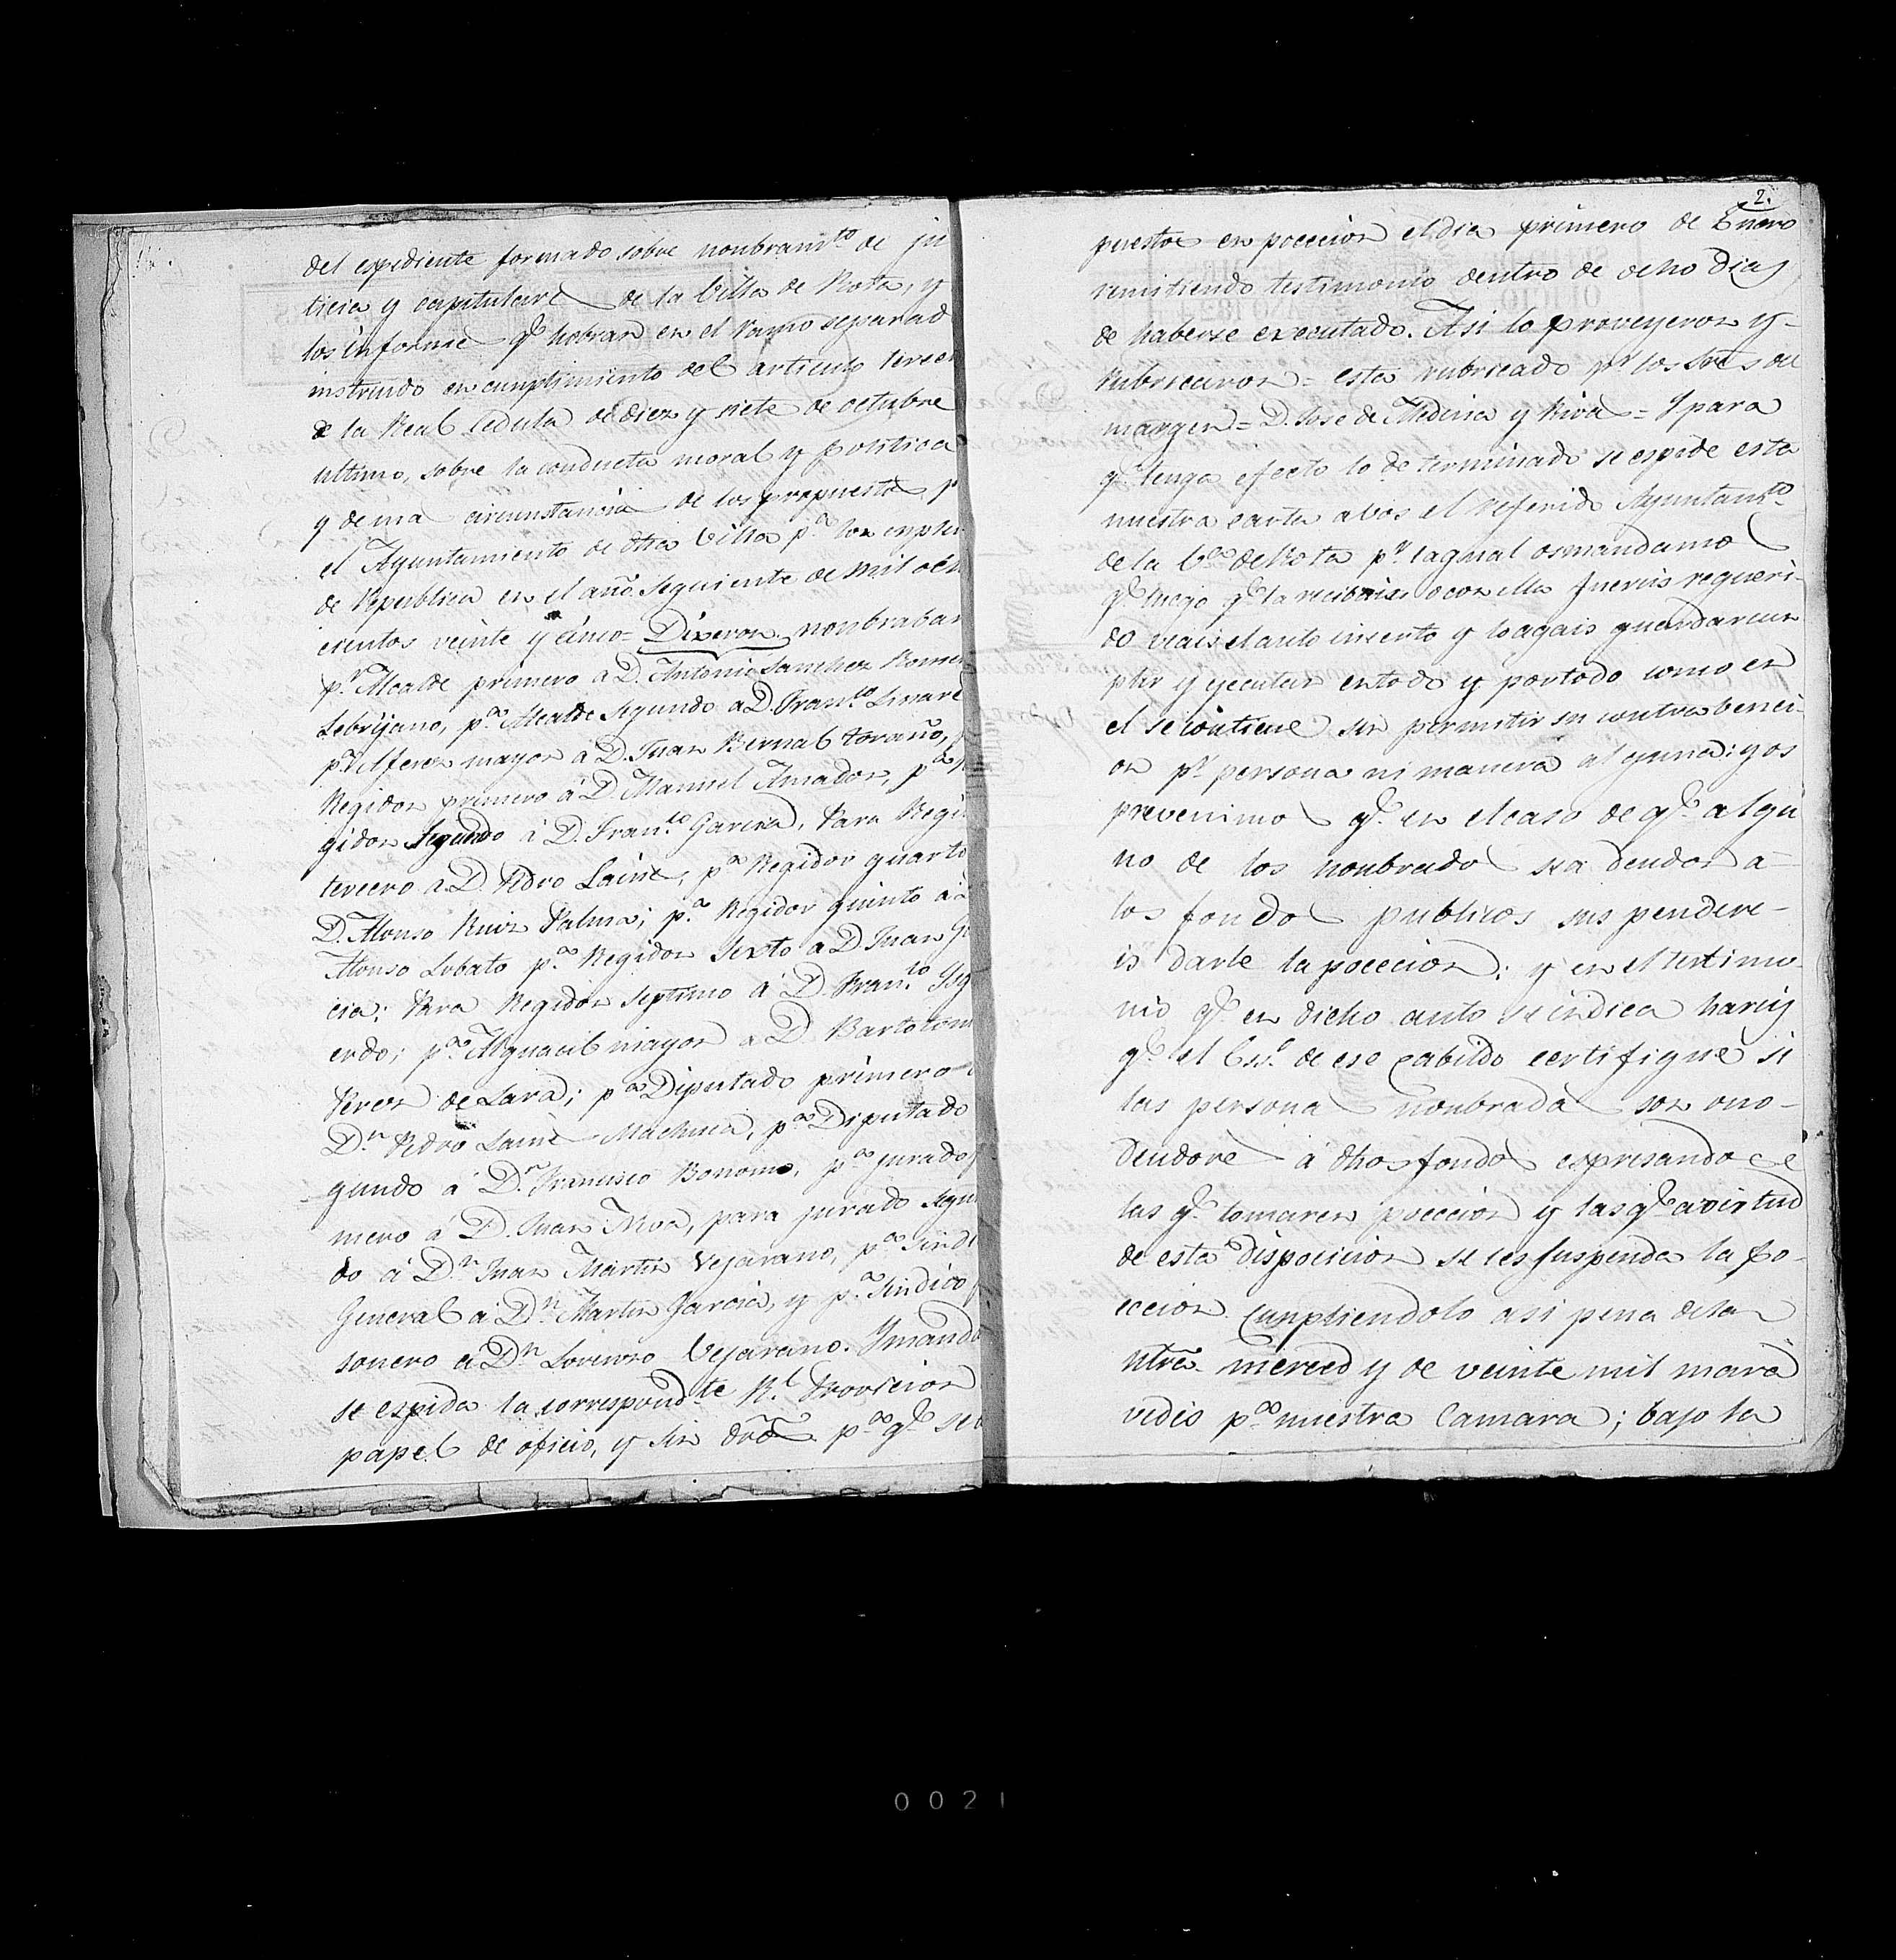 del expediente formado sobre nonbram.to de ju
ticia y capitulare de la Villa de Rota, y
los informe q.e hobran en el ramo separad
instruido en cunplimiento del articulo tercer
de la Real Cedula de diez y siete de octubre
ultimo, sobre la conducta moral y politica
y dema circunstancia de los propuesto p.
el Ayuntamiento de dha Villa p.a los enple
de Republica en el año seguiente de mil och
cientos veinte y cinco = Dixeron nonbraban
p.r Alcalde primero a D. Antonio Sanchez Romer
Lebrijano, p.a Alcalde Segundo a D. Fran.co Linare
p.a Alferez mayor a D. Juan Bernal toraño,
Regidor primero á D. Manuel Amador, p.a
gidor Segundo á D. Fran.co Garcia, Para Regi
tercero a D. Pedro Laine; p.a Regidor quarto
D. Alonso Ruiz Palma; p.a Regidor quinto a D
Alonso Lobato p.a Regidor Sexto a D Juan G
cia; Para Regidor Septimo á D. Fran.co Yzq
erdo; p.a Alguacil mayor a D. Bartolom
Perez de Lara; p.a Diputado primero
D.n Pedro Laine Machuca, p.a Diputado
gundo á D.n Francisco Bonomo, p.a jurado
mero á D. Juan Niza, para jurado Segu
do á D.n Juan Martin Vejarano, p.a Sindi
General a D.n Martin Garcia, y p.a Sindico
sonero a D.n Lorenzo Vejarano. Ymando
se espida la correspond.te R.l Provicion
papel de oficio, y sin dros p.a q.e se
2.
puestos en poceción el dia primero de Enero
remitiendo testimonio dentro de ocho dias
de haberse executado. Asi lo proveyeron y-
rubricaron = esta rubricado p.r los Sres del
margen = D. Jose de Medina y Riva = Y para
q.e tenga efecto lo determinado se espide esta
nuestra carta a vos el referido Ayuntam.to
de la V.a de Rota p.r la qual osmandamo
q.e luego q.e la recibais o con ella fuereis requeri-
do veais el auto inserto y loagais guardar cun
plir y ejecutar entodo y portodo como en
el se contiene sin permitir su contrabenci-
on p.r persona ni manera alguna: y os
prevenimo q.e en el caso de q.e algu
no de los nonbrado sea deudor a-
los fondo publicos suspendere-
is darle la poceción: y en el testimo-
nio q.e en dicho auto se indica hareis
q.e el Ess.o de ese Cabildo certifique si
las persona nonbrada son ono-
deudore á dhos fondo espresando ce
las q.e tomaren poceción y las q.e a virtud
de esta disposicion se les suspenda la po-
cecion. Cunpliendolo asi pena de la
ntra merced y de veinte mil mara
vedis p.a nuestra Camara; bajo la
0021